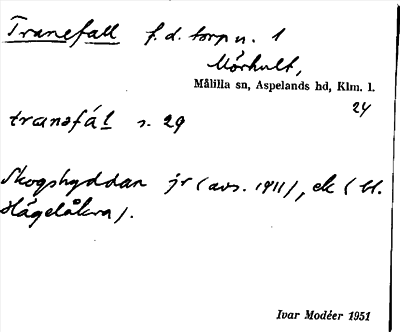 Tranefall f.d. torp n. 1
Mörhult,
Målilla sn, Aspelands hd, Klm. l.
24
tranəfál s. 29
Skogshyddan jr (avs. 1911), ek (bl.
Hägelåkra).
Ivar Modéer 1951